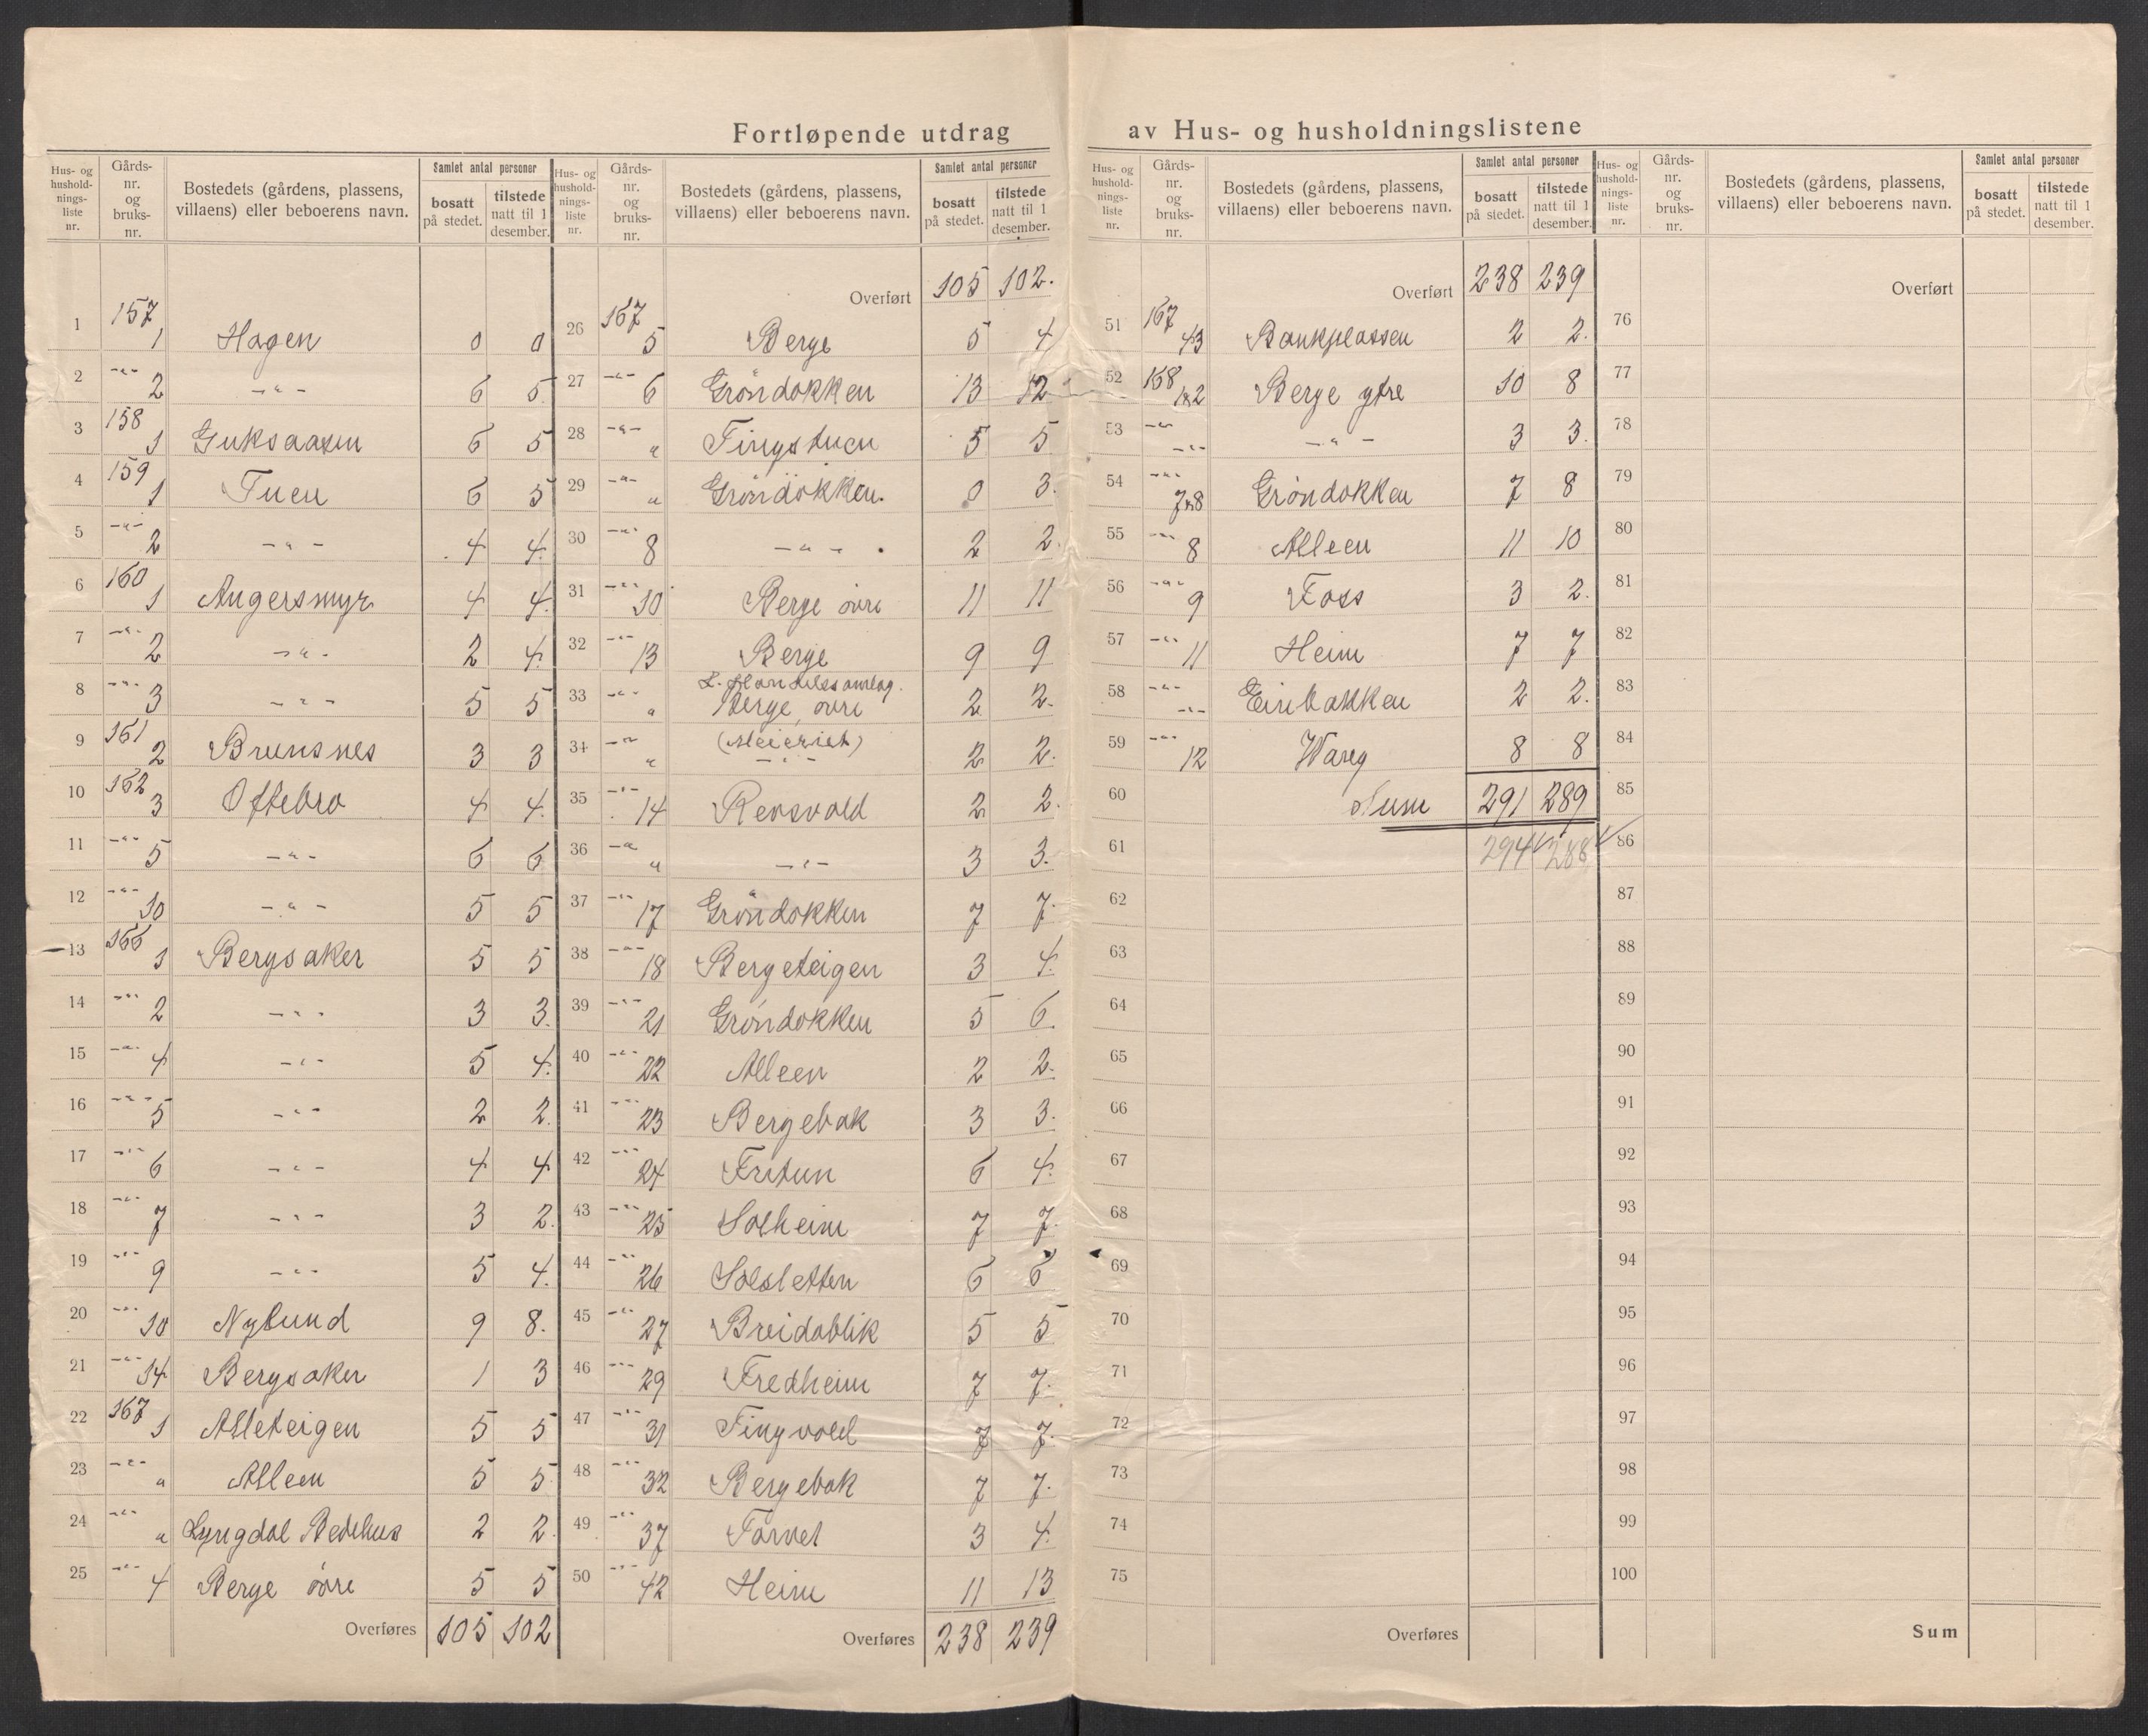 Fortløpende utdrag av Hus- og husholdningslistene
Hus- og hushold-nings-liste nr. | Gårds-nr. og bruks-nr. | Bostedets (gårdens, plassens, villaens) eller beboerens navn. | Samlet antal personer | bosatt på stedet. | tilstede natt til 1 desember.
1 157 1 Hagen 0 0
2 -"- 2 -"- 6 5
3 158 1 Guksaasen 6 5
4 159 1 Tuen 6 5
5 -"- 2 -"- 4 4.
6 160 1 Augersmyr 4 4.
7 -"- 2 -"- 2 4.
8 -"- 3 -"- 5 5
9 161 2 Brunsnes 3 3
10 162 3 Oftebro 4 4.
11 -"- 5 -"- 6 6
12 -"- 10 -"- 5 5
13 166 1 Bergsaker 5 5
14 -"- 2 -"- 3 3.
15 -"- 4 -"- 5 4.
16 -"- 5 -"- 2 2.
17 -"- 6 -"- 4 4
18 -"- 7 -"- 3 2.
19 -"- 9 -"- 5 4.
20 -"- 10 Nylund 9 8.
21 -"- 14 Bergsaker 1 3
22 167 1 Alleteigen 5 5
23 -"- " Alleen 5 5
24 -"- " Lyngdal Bedehus 2 2.
25 -"- 4 Berge övre 5 5
Overføres 105 102
Hus- og hushold-nings-liste nr. | Gårds-nr. og bruks-nr. | Bostedets (gårdens, plassens, villaens) eller beboerens navn. | Samlet antal personer | bosatt på stedet. | tilstede natt til 1 desember.
Overført 105 102.
26 167 5 Berge 5 4
27 -"- 6 Gröndokken 13 12
28 -"- " Tingstuen 5 5
29 -"- " Gröndokken. 0 3.
30 -"- 8 -"- 2 2.
31 -"- 10 Berge övre 11 11
32 -"- 13 Berge 9 9
L. Handelssamlag.
33 -"- " Berge, övre 2 2.
(Meieriet)
34 -"- " -"- 2 2.
35 -"- 14 Rosvold 2 2.
36 -"- " -"- 3 3.
37 -"- 17 Gröndokken 7 7.
38 -"- 18 Bergeteigen 3 4.
39 -"- 21 Gröndokken 5 6.
40 -"- 22 Alleen 2 2.
41 -"- 23 Bergebak 3 3.
42 -"- 24 Fretun 6 4.
43 -"- 25 Solheim 7 7.
44 -"- 26 Solsletten 6 6
45 -"- 27 Breidablik 5 5
46 -"- 29 Fredheim 7 7.
47 -"- 31 Tingvold 7 7.
48 -"- 32 Bergebak 7 7.
49 -"- 37 Torvet 3 4.
50 -"- 42 Heim 11 13
Overføres 238 239
Hus- og hushold-nings-liste nr. | Gårds-nr. og bruks-nr. | Bostedets (gårdens, plassens, villaens) eller beboerens navn. | Samlet antal personer | bosatt på stedet. | tilstede natt til 1 desember.
Overført 238 239
51 167 43 Bankplassen 2 2.
52 168 1&2 Berge ytre 10 8
53 -"- -"- -"- 3 3.
54 -"- 7&8 Gröndokken 7 8
55 -"- 8 Alleen 11 10
56 -"- 9 Foss 3 2.
57 -"- 11 Heim 7 7
58 -"- -"- Eirebakken 2 2.
59 -"- 12 Wareg 8 8
60 Sum 291 289
61 294 288
62
63
64
65
66
67
68
69
70
71
72
73
74
75
Overføres
Hus- og hushold-nings-liste nr. | Gårds-nr. og bruks-nr. | Bostedets (gårdens, plassens, villaens) eller beboerens navn. | Samlet antal personer | bosatt på stedet. | tilstede natt til 1 desember.
Overført
76
77
78
79
80
81
82
83
84
85
86
87
88
89
90
91
92
93
94
95
96
97
98
99
100
Sum